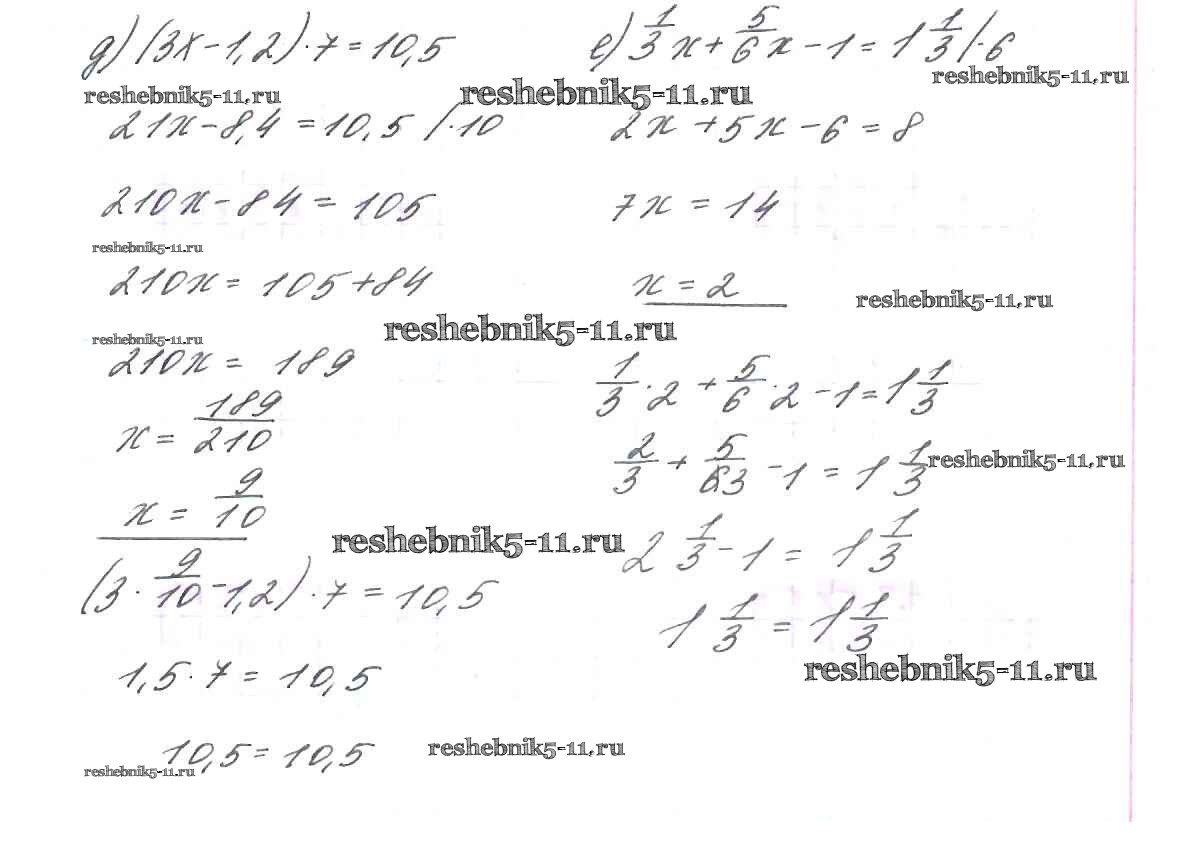 д) (3x-1,2)·7=10,5
reshebnik5-11.ru
21x-8,4=10,5 /·10
210x-84=105
reshebnik5-11.ru
210x=105+84
reshebnik5-11.ru
210x=189
x=189/210
x=9/10
(3·9/10-1,2)·7=10,5
1,5·7=10,5
10,5=10,5
reshebnik5-11.ru
reshebnik5-11.ru
reshebnik5-11.ru
reshebnik5-11.ru
reshebnik5-11.ru
е) 1/3x+5/6x-1=1 1/3 /·6
reshebnik5-11.ru
2x+5x-6=8
7x=14
x=2
reshebnik5-11.ru
1/3·2+5/6·2-1=1 1/3
2/3+5/3-1=1 1/3
reshebnik5-11.ru
2 1/3-1=1 1/3
1 1/3=1 1/3
reshebnik5-11.ru